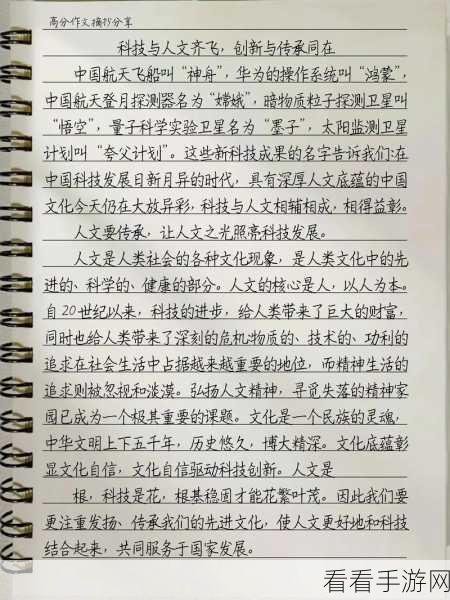 高分作文摘抄分享
科技与人文齐飞，创新与传承同在
中国航天飞船叫“神舟”，华为的操作系统叫“鸿蒙”，
中国航天登月探测器名为“嫦娥”，暗物质粒子探测卫星叫
“悟空”，量子科学实验卫星名为“墨子”，太阳监测卫星
计划叫“夸父计划”。这些新科技成果的名字告诉我们：在
中国科技发展日新月异的时代，具有深厚人文底蕴的中国
文化今天仍在大放异彩，科技与人文相辅相成，相得益彰。
人文要传承，让人文之光照亮科技发展。
人文是人类社会的各种文化现象，是人类文化中的先
进的、科学的、健康的部分。人文的核心是人，以人为本。
自20世纪以来，科技的进步，给人类带来了巨大的财富，
同时也给人类带来了深刻的危机：物质的、技术的、功利的
追求在社会生活中占据越来越重要的地位，而精神生活的
追求则被忽视和淡漠。弘扬人文精神，寻觅失落的精神家
园已成为一个极其重要的课题。文化是一个民族的灵魂，
中华文明上下五千年，历史悠久，博大精深。文化底蕴彰
显文化自信，文化自信驱动科技创新。人文是
根，科技是花，根基稳固才能花繁叶茂。因此我们要
更注重发扬、传承我们的先进文化，使人文更好地和科技
结合起来，共同服务于国家发展。
看看手游网